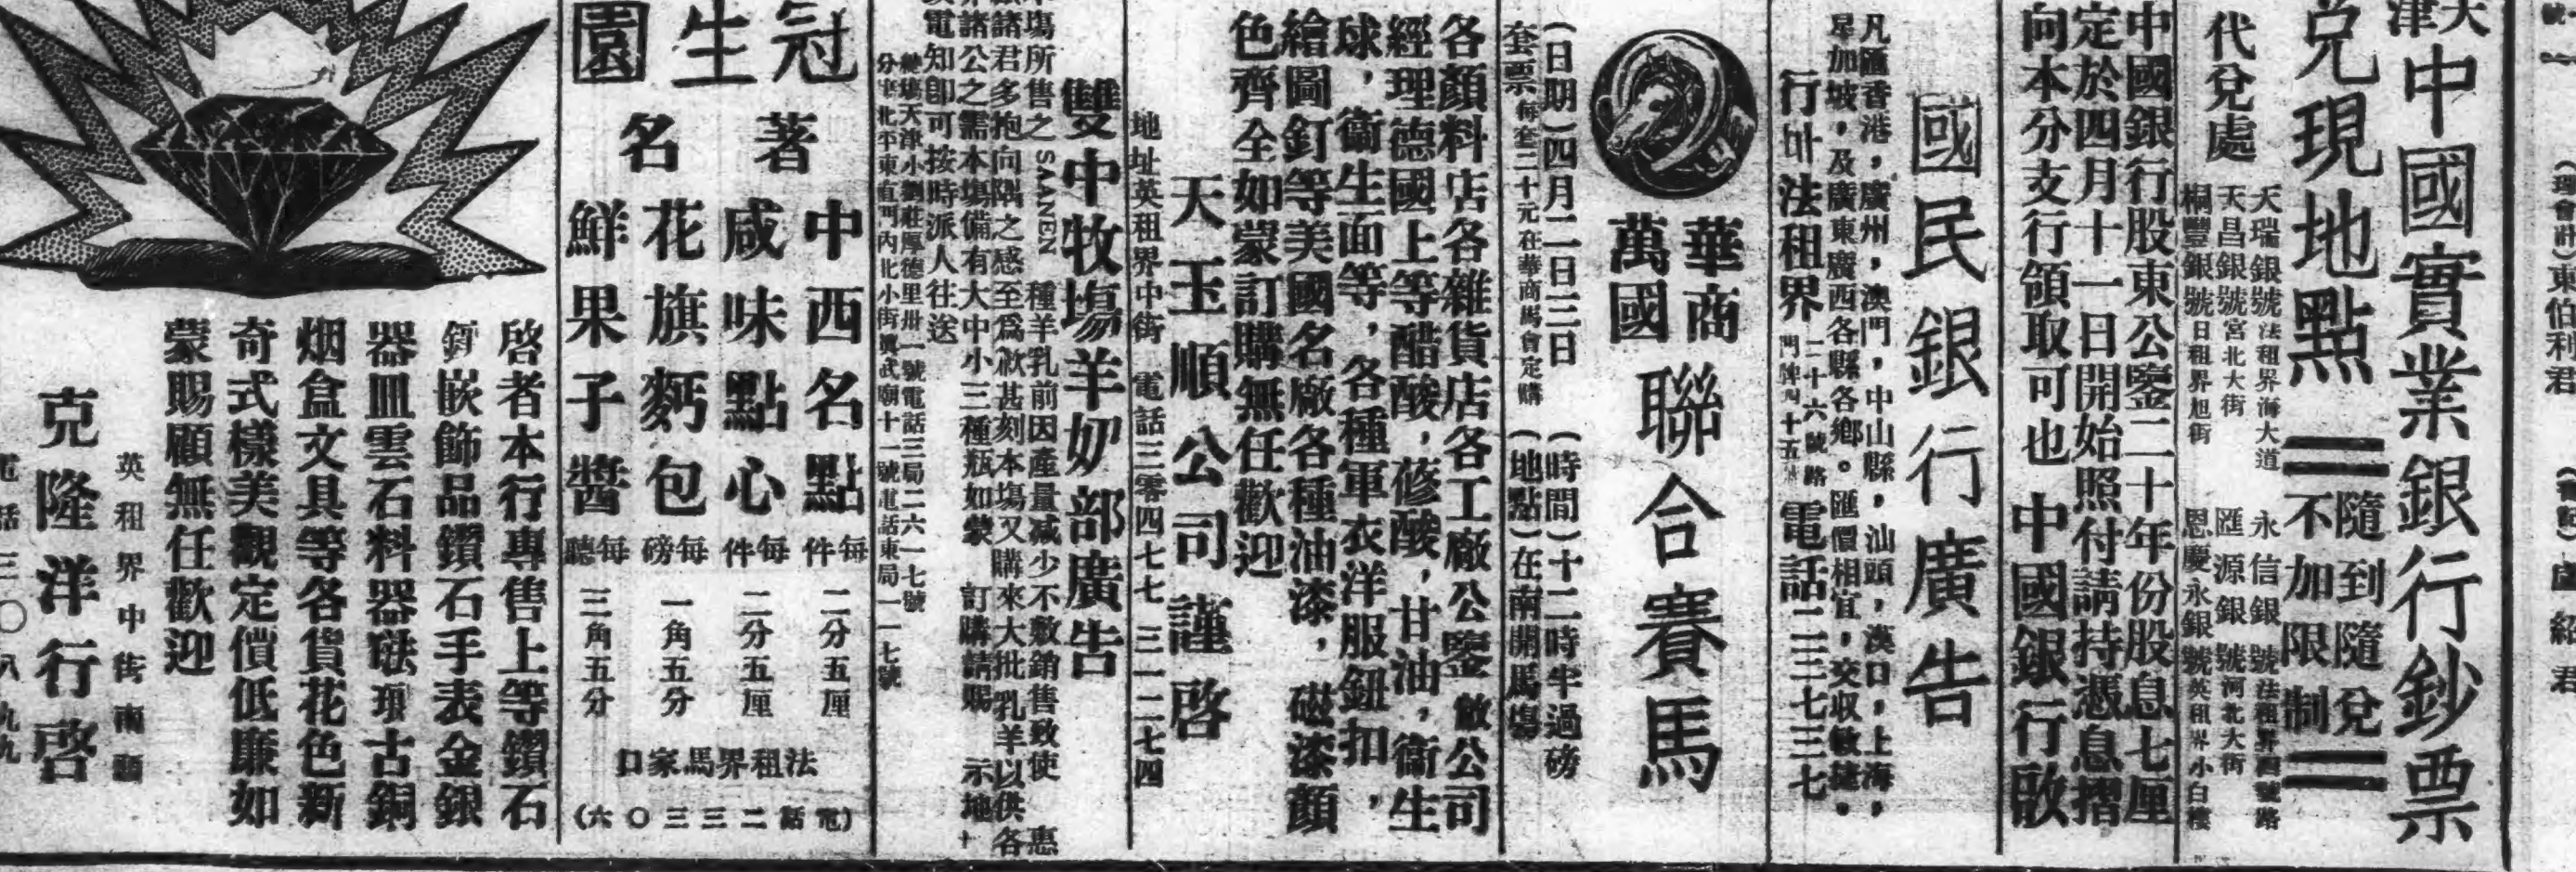 天津
中國實業銀行鈔票
兌現地點
隨到隨兌
不加限制
代兌處
天瑞銀號 法租界海大道
天昌銀號 宮北大街
桐豐銀號 日租界旭街
永信銀號 法租界四號路
匯源銀號 河北大街
恩慶永銀號 英租界小白樓
中國銀行股東公鑒二十年份股息七厘
定於四月十一日開始照付請持憑息摺
向本分支行領取可也 中國銀行啟
國民銀行廣告
凡匯香港，廣州，澳門，中山縣，汕頭，漢口，上海，
星加坡，及廣東廣西各縣各鄉。匯價相宜，交收敏捷。
行址法租界 二十六號路 門牌四十五號 電話二二七三七
華商
萬國
聯合賽馬
(日期)四月二日三日
(時間)十二時半過磅
套票 每套二十元在華商馬會定購
(地點)在南開馬塲
各顏料店各雜貨店各工廠公鑒 敝公司
經理德國上等醋酸，蓚酸，甘油，衞生
球，衞生面等，各種軍衣洋服鈕扣，
繪圖釘等美國名廠各種油漆，磁漆顏
色齊全如蒙訂購無任歡迎
天玉順公司謹啓
地址英租界中街 電話三零四七七 三一二七四
雙中牧塲羊奶部廣告
塲所售之 SAANEN 種羊乳前因產量減少不敷銷售致使 惠
諸君多抱向隅之感至爲歉甚刻本塲又購來大批乳羊以供各
諸公之需本塲備有大中小三種瓶如蒙 訂購請賜 示地
電知卽可按時派人往送
塲天津小劉莊厚德里卅一號電話三局二六一七號
北平東直門內北小街 武廟十一號電話東局一一七號
冠生園
著名
中西名點 每件 二分五厘
咸味點心 每件 二分五厘
花旗麪包 每磅 一角五分
鮮果子醬 每聽 三角五分
法租界馬家口
(電話二三三〇六)
啓者本行專售上等鑽石
鑲嵌飾品鑽石手表金銀
器皿雲石料器琺琅古銅
烟盒文具等各貨花色新
奇式樣美觀定價低廉如
蒙賜顧無任歡迎
英租界中街南頭
克隆洋行啓
電話三〇八九九